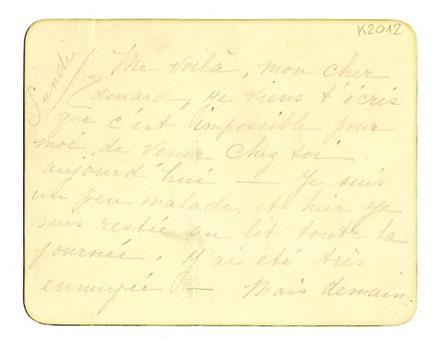 K2012
Lundi
Me voilà, mon cher
Edouard, je viens t'écris
que c'est impossible pour
moi de venir chez toi
aujourd'hui — Je suis
un peu malade, et hier je
suis restée en lit toute la
journée. J'ai été très
ennuyée — Mais demain